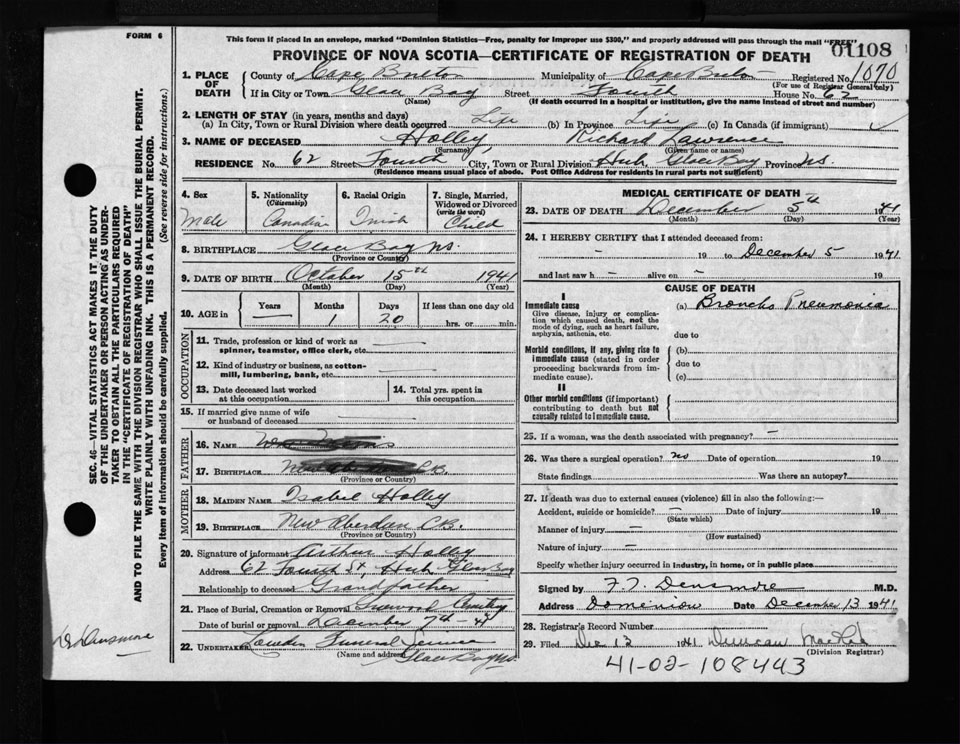 FORM 6
This form if placed in an envelope, marked "Dominion Statistics—Free, penalty for improper use $300," and properly addressed will pass through the mail "FREE"
01108
PROVINCE OF NOVA SCOTIA—CERTIFICATE OF REGISTRATION OF DEATH
1. PLACE OF DEATH
County of Cape Breton Municipality of Cape Breton Registered No. 1070
(For use of Registrar General only)
If in City or Town Glace Bay Street Fourth House No. 62
(Name) (If death occurred in a hospital or institution, give the name instead of street and number)
2. LENGTH OF STAY (in years, months and days)
(a) In City, Town or Rural Division where death occurred Life (b) In Province Life (c) In Canada (if immigrant)
3. NAME OF DECEASED Holley, Richard Lawrence
(Surname) (Given name or names)
RESIDENCE No. 62 Street Fourth City, Town or Rural Division Hub, Glace Bay Province N.S.
(Residence means usual place of abode. Post Office Address for residents in rural parts not sufficient)
4. Sex
Male
5. Nationality
(Citizenship)
Canadian
6. Racial Origin
Irish
7. Single, Married, Widowed or Divorced
(write the word)
Child
8. BIRTHPLACE Glace Bay N.S.
(Province or Country)
9. DATE OF BIRTH October 15th 1941
(Month) (Day) (Year)
10. AGE in
Years — Months 1 Days 20
If less than one day old
hrs. or min.
OCCUPATION
11. Trade, profession or kind of work as spinner, teamster, office clerk, etc. —
12. Kind of industry or business, as cotton-mill, lumbering, bank, etc. —
13. Date deceased last worked at this occupation
14. Total yrs. spent in this occupation
15. If married give name of wife or husband of deceased —
FATHER
16. NAME
17. BIRTHPLACE C.B.
(Province or Country)
MOTHER
18. MAIDEN NAME Isabel Holley
19. BIRTHPLACE New Aberdeen C.B.
(Province or Country)
20. Signature of informant Arthur Holley
Address 62 Fourth St, Hub Glace Bay
Relationship to deceased Grandfather
21. Place of Burial, Cremation or Removal Greenwood Cemetery
Date of burial or removal December 7th - 41
22. UNDERTAKER Funeral Service
(Name and address) Glace Bay N.S.
MEDICAL CERTIFICATE OF DEATH
23. DATE OF DEATH December 5th 1941
(Month) (Day) (Year)
24. I HEREBY CERTIFY that I attended deceased from:
— 19 to December 5 1941
and last saw h — alive on — 19
CAUSE OF DEATH
I
Immediate cause
Give disease, injury or complication which caused death, not the mode of dying, such as heart failure, asphyxia, asthenia, etc.
(a) Broncho Pneumonia
due to
Morbid conditions, if any, giving rise to immediate cause (stated in order proceeding backwards from immediate cause).
(b)
due to
(c)
II
Other morbid conditions (if important) contributing to death but not causally related to immediate cause.
25. If a woman, was the death associated with pregnancy? —
26. Was there a surgical operation? no Date of operation 19
State findings Was there an autopsy?
27. If death was due to external causes (violence) fill in also the following:—
Accident, suicide or homicide? — Date of injury 19
(State which)
Manner of injury —
(How sustained)
Nature of injury —
Specify whether injury occurred in industry, in home, or in public place
Signed by F. T. Densmore M.D.
Address Dominion Date December 13 1941
28. Registrar's Record Number
29. Filed Dec 13 1941 Duncan
(Division Registrar)
41-02-108443
SEC. 46—VITAL STATISTICS ACT MAKES IT THE DUTY OF THE UNDERTAKER OR PERSON ACTING AS UNDERTAKER TO OBTAIN ALL THE PARTICULARS REQUIRED IN THE "CERTIFICATE OF REGISTRATION OF DEATH"
AND TO FILE THE SAME WITH THE DIVISION REGISTRAR WHO SHALL ISSUE THE BURIAL PERMIT.
WRITE PLAINLY WITH UNFADING INK. THIS IS A PERMANENT RECORD.
Every item of information should be carefully supplied. (See reverse side for instructions.)
Densmore